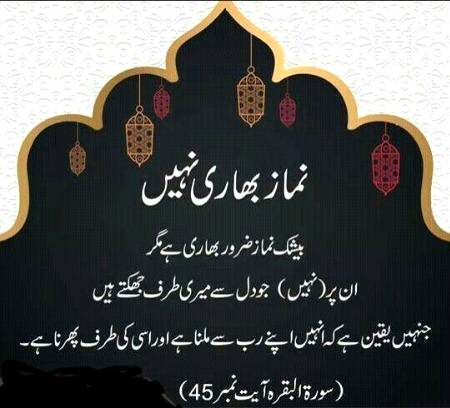 نماز بھاری نہیں
بیشک نماز ضرور بھاری ہے مگر
ان پر (نہیں) جو دل سے میری طرف جھکتے ہیں
جنہیں یقین ہے کہ انہیں اپنے رب سے ملنا ہے اور اسی کی طرف پھرنا ہے۔
(سورۃ البقرہ آیت نمبر 45)